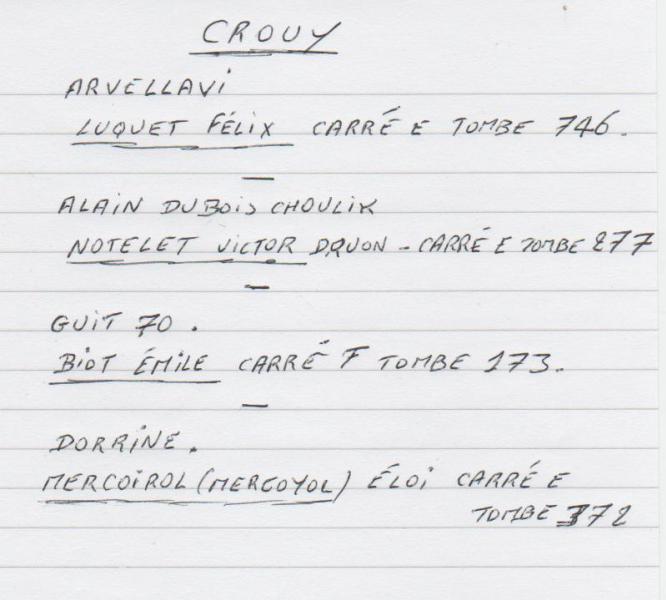 CROUY
ARVELLAVI
LUQUET FÉLIX CARRÉ E TOMBE 746.
—
ALAIN DUBOIS CHOULIK
NOTELET VICTOR DRUON - CARRÉ E TOMBE 277
—
GUIT 70.
BIOT ÉMILE CARRÉ F TOMBE 173.
—
DORRINE.
MERCOIROL (MERCOYOL) ÉLOI CARRÉ E
TOMBE 372